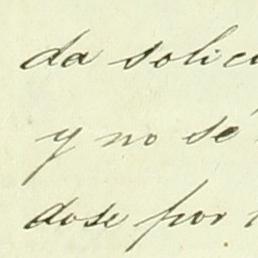 da solici
y no sé
dose por